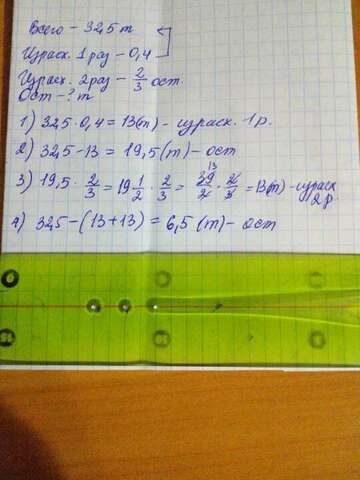 Всего – 32,5 т
Израсх. 1 раз – 0,4
Израсх. 2 раз – 2/3 ост.
Ост – ? т
1) 32,5 · 0,4 = 13(т) – израсх. 1 р.
2) 32,5 – 13 = 19,5 (т) – ост
3) 19,5 · 2/3 = 19 1/2 · 2/3 = 39/2 · 2/3 = 13(т) – израсх 2р.
4) 32,5 – (13 + 13) = 6,5 (т) – ост